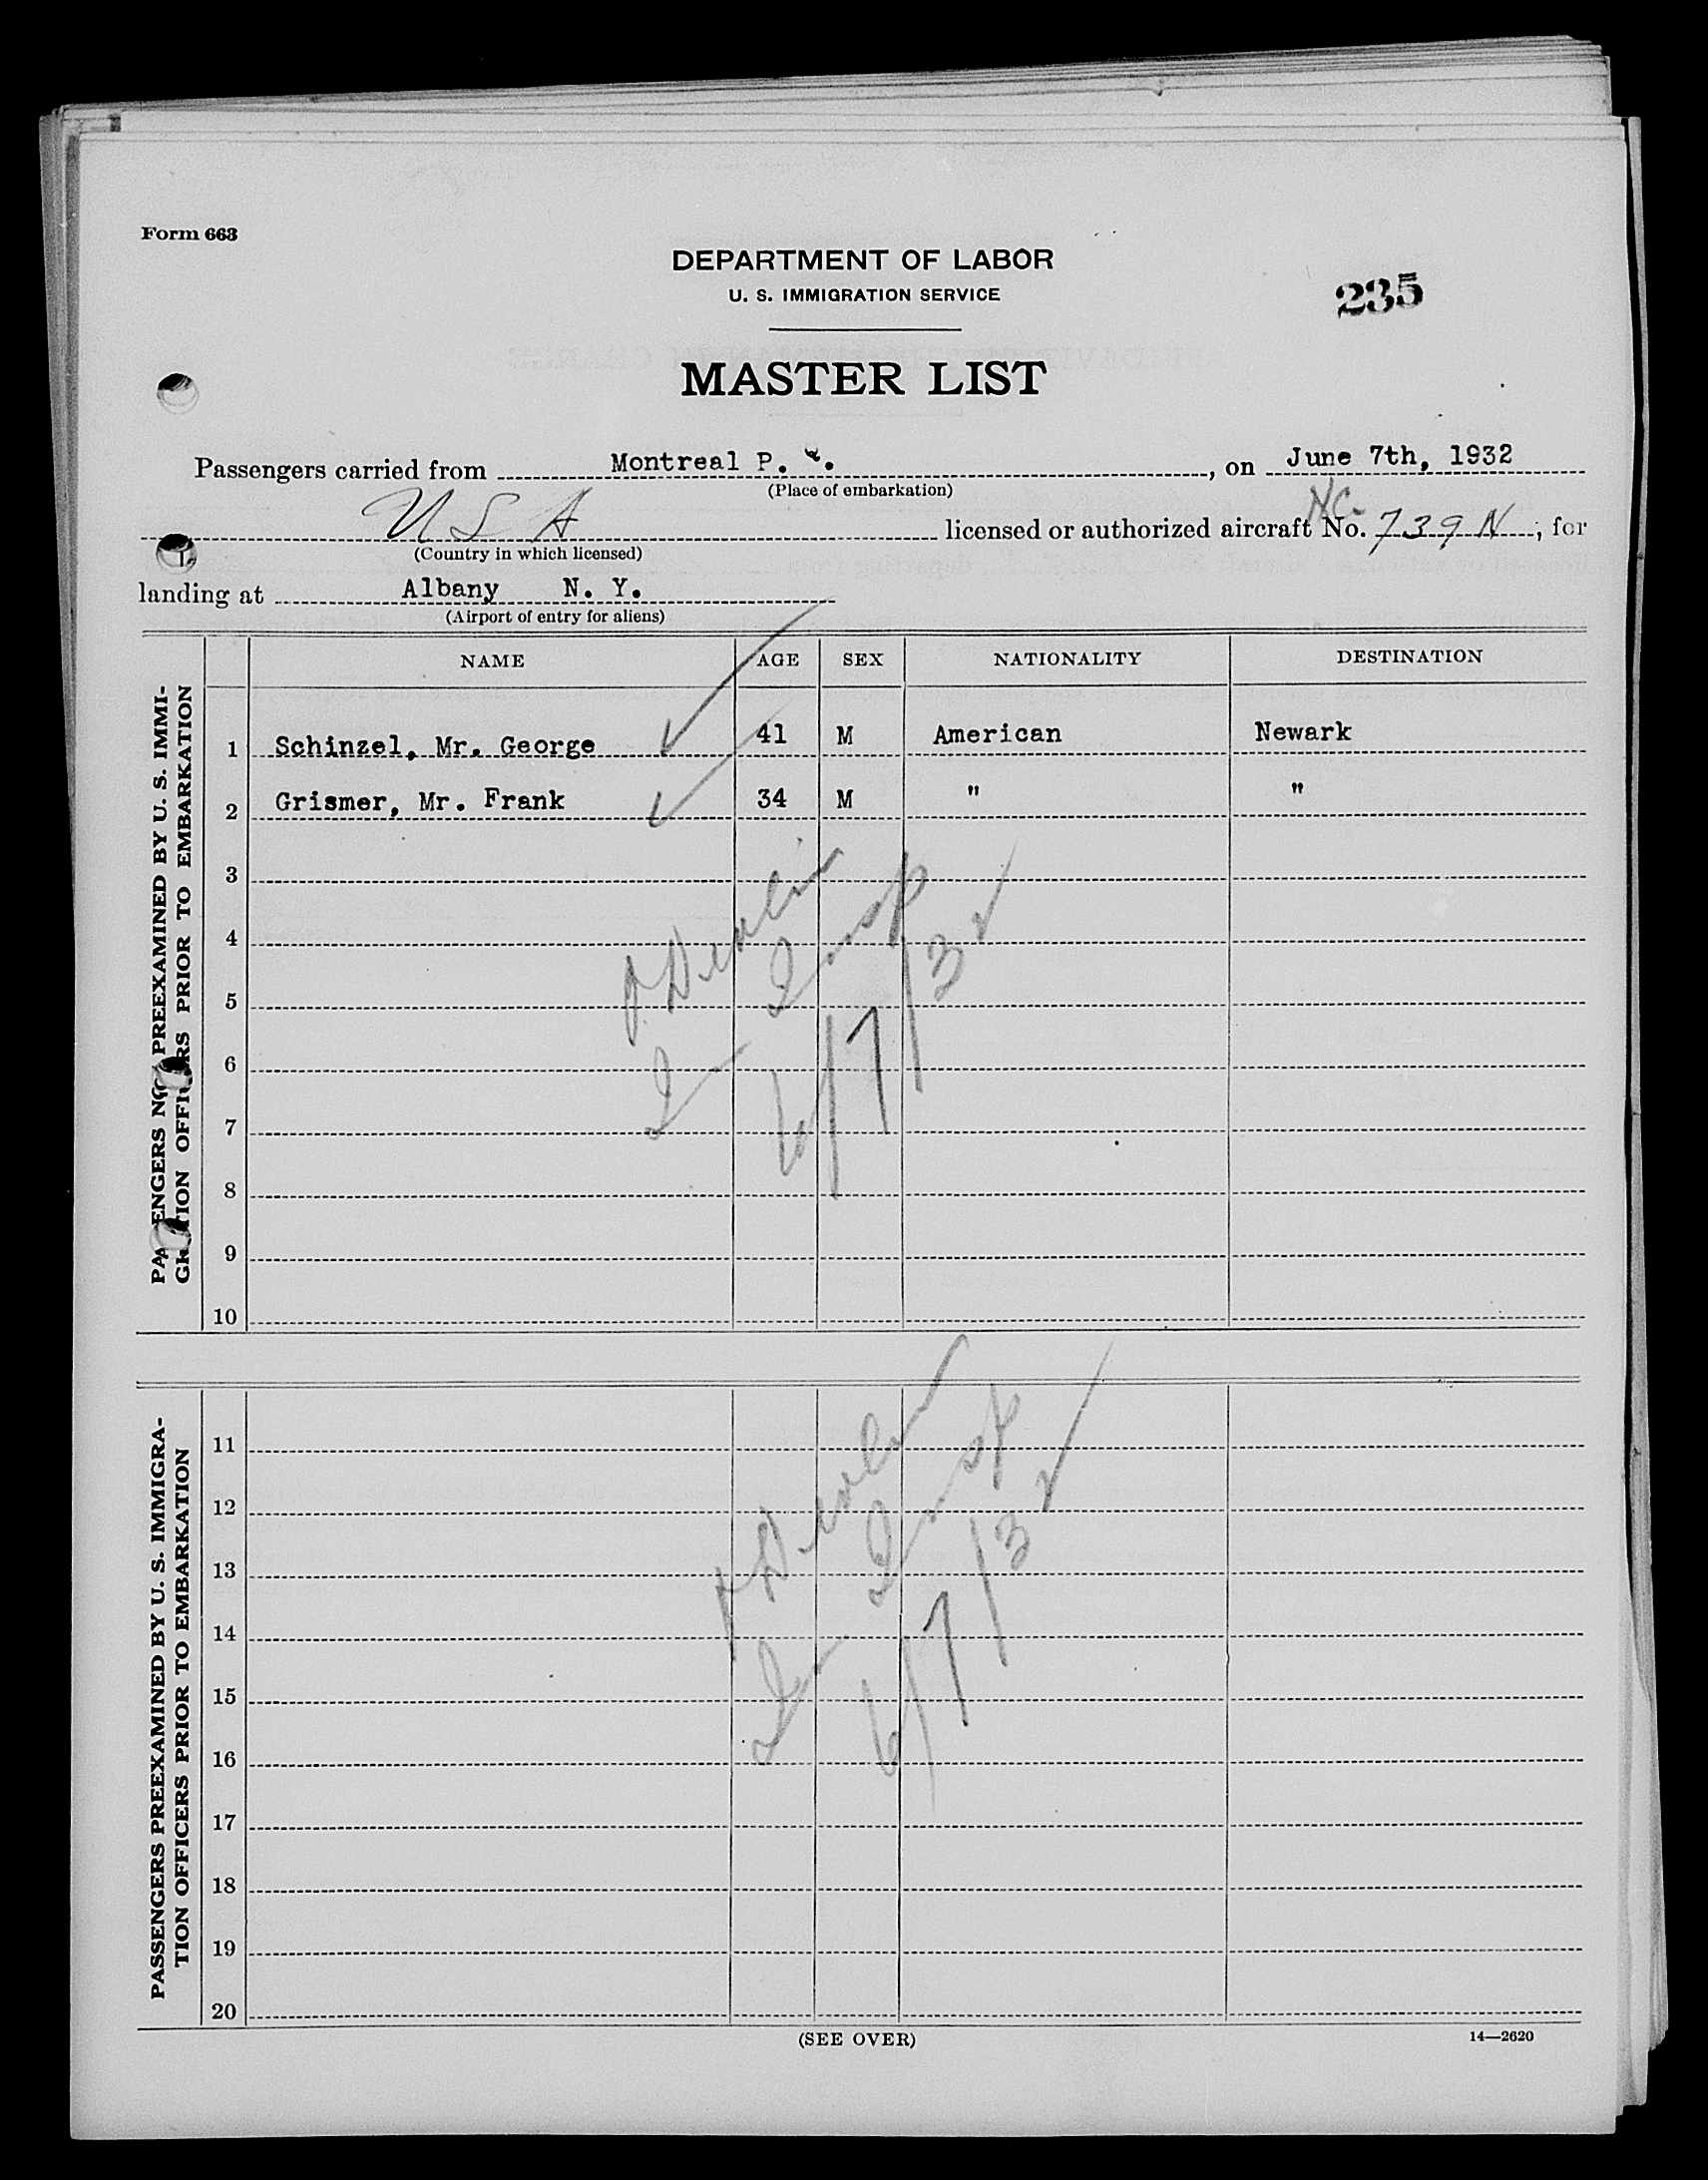 Form 663
DEPARTMENT OF LABOR
U. S. IMMIGRATION SERVICE
235
MASTER LIST
Passengers carried from Montreal P. Q. , on June 7th, 1932
(Place of embarkation)
U S A licensed or authorized aircraft NC. No. 739N ; for
(Country in which licensed)
landing at Albany N. Y.
(Airport of entry for aliens)
NAME AGE SEX NATIONALITY DESTINATION
PASSENGERS NOT PREEXAMINED BY U. S. IMMI-
GRATION OFFICERS PRIOR TO EMBARKATION
1 Schinzel, Mr. George 41 M American Newark
2 Grismer, Mr. Frank 34 M " "
3
4
5
6
7
8
9
10
Devlin
Insp
6/7/32
PASSENGERS PREEXAMINED BY U. S. IMMIGRA-
TION OFFICERS PRIOR TO EMBARKATION
11
12
13
14
15
16
17
18
19
20
Devlin
Insp
6/7/32
(SEE OVER)
14—2620